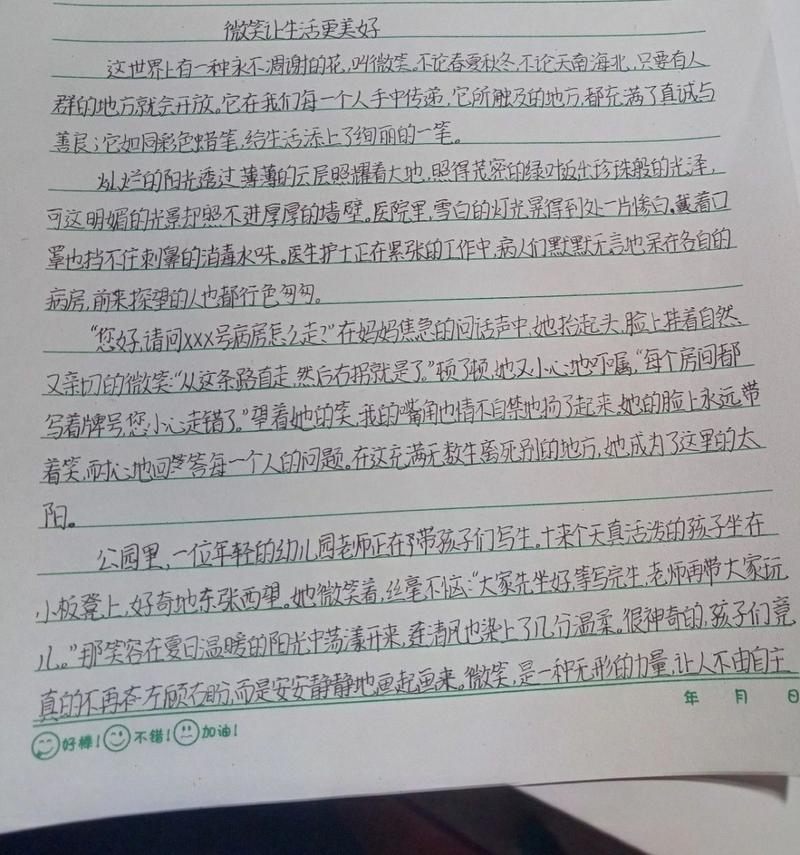 微笑让生活更美好
这世界上有一种永不凋谢的花,叫微笑。不论春夏秋冬,不论天南海北,只要有人
群的地方就会开放。它在我们每一个人手中传递,它所触及的地方,都充满了真诚与
善良;它如同彩色蜡笔,给生活添上了绚丽的一笔。
灿烂的阳光透过薄薄的云层照耀着大地,照得茂密的绿叶返出珍珠般的光泽,
可这明媚的光景却照不进厚厚的墙壁。医院里,雪白的灯光晃得到处一片惨白。戴着口
罩也挡不住刺鼻的消毒水味。医生护士正在紧张的工作中,病人们默默无言地呆在各自的
病房,前来探望的人也都行色匆匆。
“您好,请问XXX号病房怎么走?”在妈妈焦急的问话声中,她抬起头,脸上挂着自然
又亲切的微笑:“从这条路直走,然后右拐就是了。”顿了顿,她又小心地叮嘱,“每个房间都
写着牌号,您小心走错了。”望着她的笑,我的嘴角也情不自禁地扬了起来。她的脸上永远带
着笑,耐心地回答每一个人的问题。在这充满无数生离死别的地方,她,成为了这里的太
阳。
公园里,一位年轻的幼儿园老师正在带孩子们写生。十来个天真活泼的孩子坐在
小板凳上,好奇地东张西望。她微笑着,丝毫不恼:“大家先坐好,等写完生,老师再带大家玩
儿。”那笑容在夏日温暖的阳光中荡漾开来,连清风也染上了几分温柔。很神奇的,孩子们竟
真的不再左顾右盼,而是安安静静地画起画来。微笑,是一种无形的力量,让人不由自主
年 月 日
好棒! 不错! 加油!